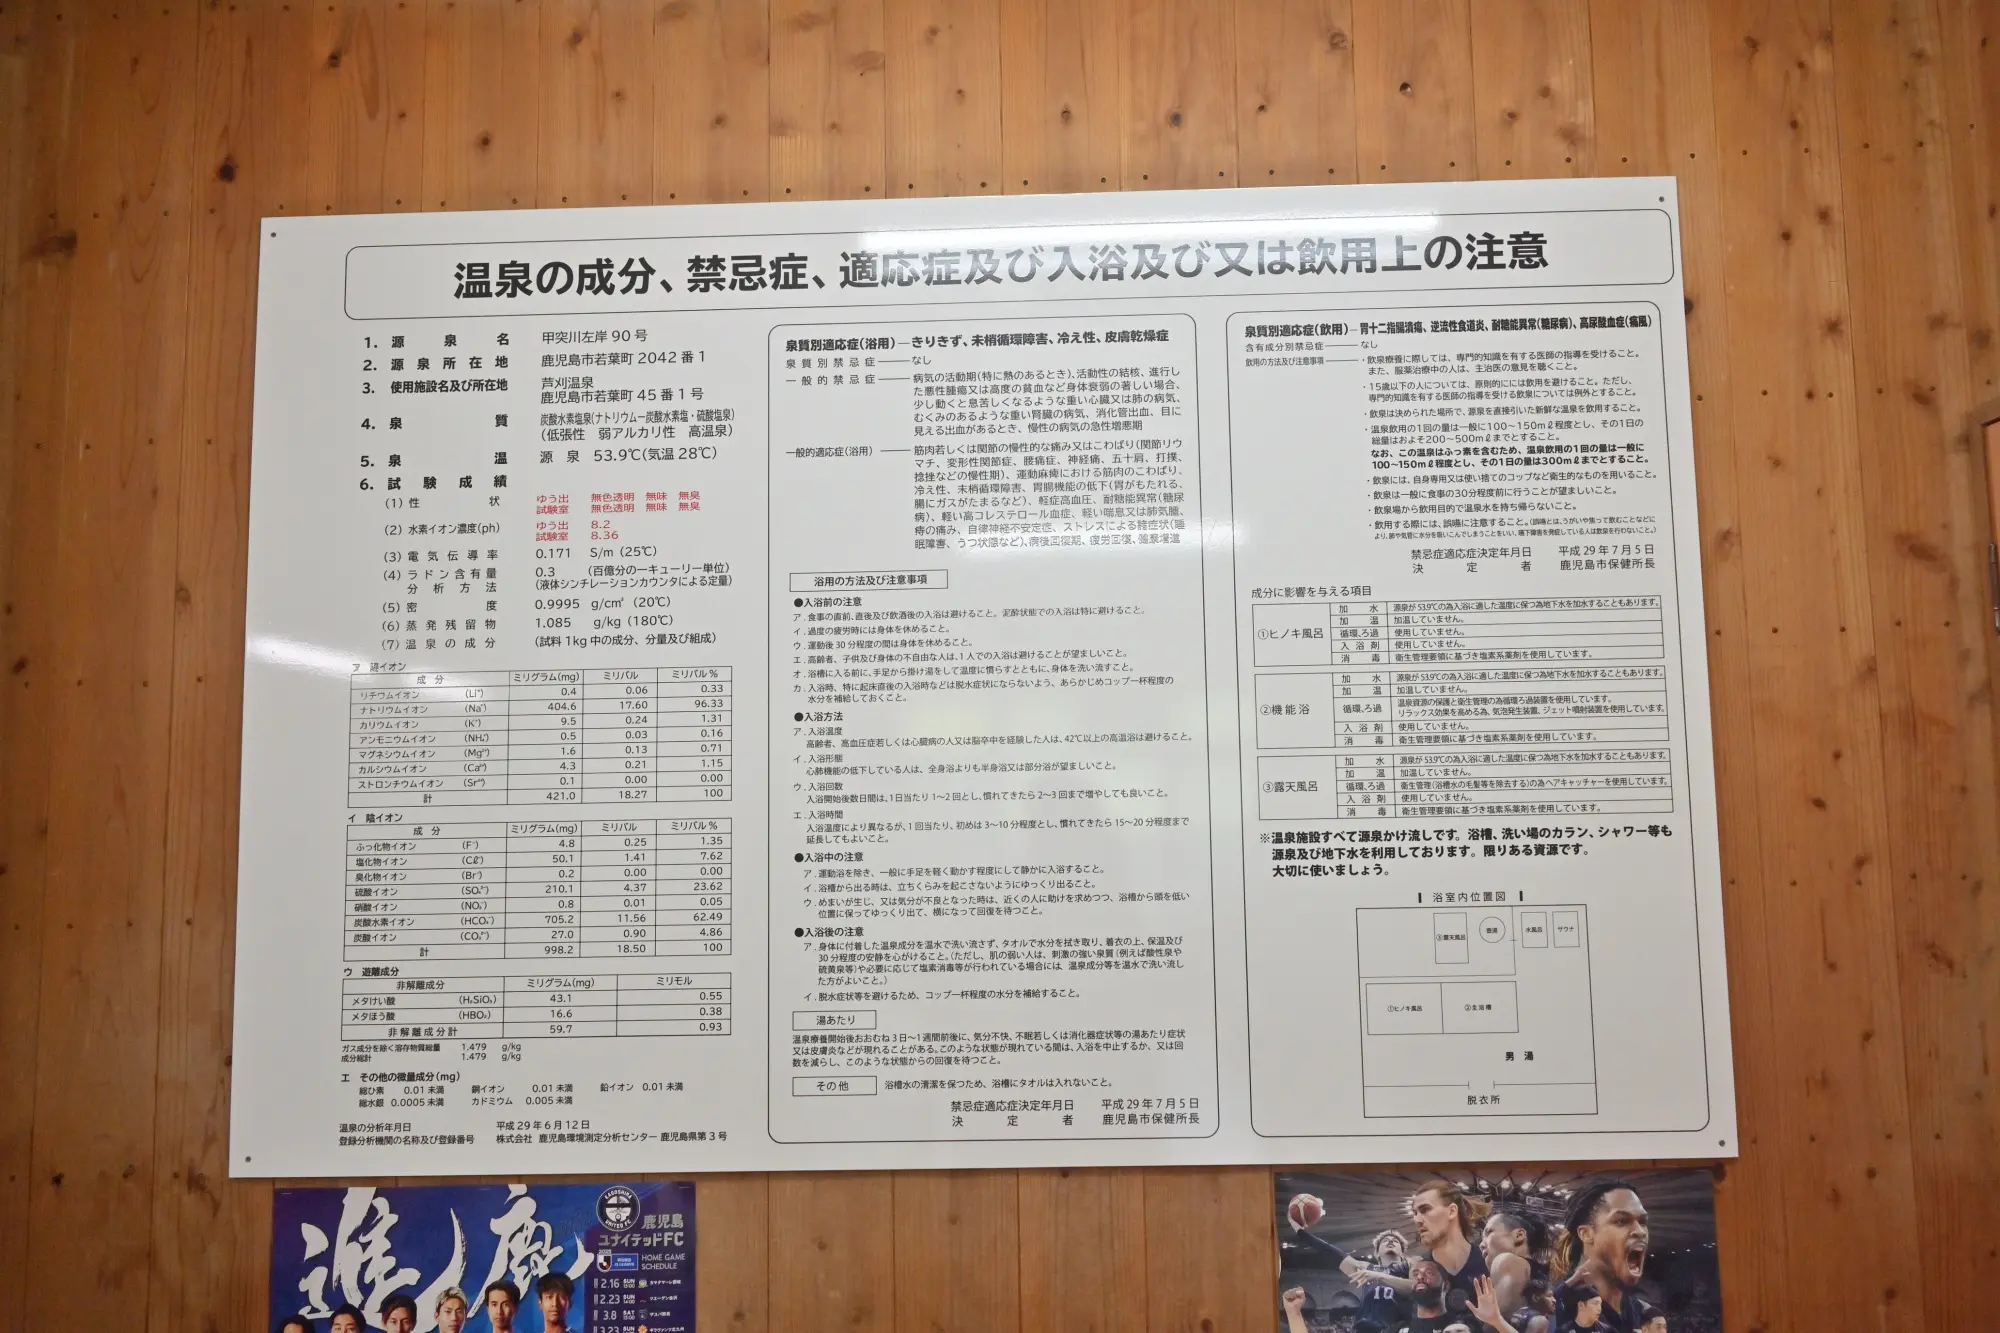 温泉の成分、禁忌症、適応症及び入浴及び又は飲用上の注意
1. 源泉名 甲突川左岸90号
2. 源泉所在地 鹿児島市若葉町2042番1
3. 使用施設名及び所在地 芦刈温泉
鹿児島市若葉町45番1号
4. 泉質 炭酸水素塩泉(ナトリウムー炭酸水素塩・硫酸塩泉)
(低張性 弱アルカリ性 高温泉)
5. 泉温 源泉 53.9℃(気温28℃)
6. 試験成績
(1)性状 ゆう出 無色透明 無味 無臭
試験室 無色透明 無味 無臭
(2)水素イオン濃度(ph) ゆう出 8.2
試験室 8.36
(3)電気伝導率 0.171 S/m(25℃)
(4)ラドン含有量 0.3 (百億分の一キューリー単位)
分析方法 (液体シンチレーションカウンタによる定量)
(5)密度 0.9995 g/cm³(20℃)
(6)蒸発残留物 1.085 g/kg(180℃)
(7)温泉の成分 (試料1kg中の成分、分量及び組成)
ア 陽イオン
成分 ミリグラム(mg) ミリバル ミリバル%
リチウムイオン (Li⁺) 0.4 0.06 0.33
ナトリウムイオン (Na⁺) 404.6 17.60 96.33
カリウムイオン (K⁺) 9.5 0.24 1.31
アンモニウムイオン (NH₄⁺) 0.5 0.03 0.16
マグネシウムイオン (Mg²⁺) 1.6 0.13 0.71
カルシウムイオン (Ca²⁺) 4.3 0.21 1.15
ストロンチウムイオン (Sr²⁺) 0.1 0.00 0.00
計 421.0 18.27 100
イ 陰イオン
成分 ミリグラム(mg) ミリバル ミリバル%
ふっ化物イオン (F⁻) 4.8 0.25 1.35
塩化物イオン (Cℓ⁻) 50.1 1.41 7.62
臭化物イオン (Br⁻) 0.2 0.00 0.00
硫酸イオン (SO₄²⁻) 210.1 4.37 23.62
硝酸イオン (NO₃⁻) 0.8 0.01 0.05
炭酸水素イオン (HCO₃⁻) 705.2 11.56 62.49
炭酸イオン (CO₃²⁻) 27.0 0.90 4.86
計 998.2 18.50 100
ウ 遊離成分
非解離成分 ミリグラム(mg) ミリモル
メタけい酸 (H₂SiO₃) 43.1 0.55
メタほう酸 (HBO₂) 16.6 0.38
非解離成分計 59.7 0.93
ガス成分を除く溶存物質総量 1.479 g/kg
成分総計 1.479 g/kg
エ その他の微量成分(mg)
総ひ素 0.01未満 銅イオン 0.01未満 鉛イオン 0.01未満
総水銀 0.0005未満 カドミウム 0.005未満
温泉の分析年月日 平成29年6月12日
登録分析機関の名称及び登録番号 株式会社 鹿児島環境測定分析センター 鹿児島県第3号
泉質別適応症(浴用)―きりきず、末梢循環障害、冷え性、皮膚乾燥症
泉質別禁忌症―なし
一般的禁忌症―病気の活動期(特に熱のあるとき)、活動性の結核、進行し
た悪性腫瘍又は高度の貧血など身体衰弱の著しい場合、
少し動くと息苦しくなるような重い心臓又は肺の病気、
むくみのあるような重い腎臓の病気、消化管出血、目に
見える出血があるとき、慢性の病気の急性増悪期
一般的適応症(浴用)―筋肉若しくは関節の慢性的な痛み又はこわばり(関節リウ
マチ、変形性関節症、腰痛症、神経痛、五十肩、打撲、
捻挫などの慢性期)、運動麻痺における筋肉のこわばり、
冷え性、末梢循環障害、胃腸機能の低下(胃がもたれる、
腸にガスがたまるなど)、軽症高血圧、耐糖能異常(糖尿
病)、軽い高コレステロール血症、軽い喘息又は肺気腫、
痔の痛み、自律神経不安定症、ストレスによる諸症状(睡
眠障害、うつ状態など)、病後回復期、疲労回復、健康増進
浴用の方法及び注意事項
●入浴前の注意
ア.食事の直前、直後及び飲酒後の入浴は避けること。泥酔状態での入浴は特に避けること。
イ.過度の疲労時には身体を休めること。
ウ.運動後30分程度の間は身体を休めること。
エ.高齢者、子供及び身体の不自由な人は、1人での入浴は避けることが望ましいこと。
オ.浴槽に入る前に、手足から掛け湯をして温度に慣らすとともに、身体を洗い流すこと。
カ.入浴時、特に起床直後の入浴時などは脱水症状にならないよう、あらかじめコップ一杯程度の
水分を補給しておくこと。
●入浴方法
ア.入浴温度
高齢者、高血圧症若しくは心臓病の人又は脳卒中を経験した人は、42℃以上の高温浴は避けること。
イ.入浴形態
心肺機能の低下している人は、全身浴よりも半身浴又は部分浴が望ましいこと。
ウ.入浴回数
入浴開始後数日間は、1日当たり1〜2回とし、慣れてきたら2〜3回まで増やしても良いこと。
エ.入浴時間
入浴温度により異なるが、1回当たり、初めは3〜10分程度とし、慣れてきたら15〜20分程度まで
延長してもよいこと。
●入浴中の注意
ア.運動浴を除き、一般に手足を軽く動かす程度にして静かに入浴すること。
イ.浴槽から出る時は、立ちくらみを起こさないようにゆっくり出ること。
ウ.めまいが生じ、又は気分が不良となった時は、近くの人に助けを求めつつ、浴槽から頭を低い
位置に保ってゆっくり出て、横になって回復を待つこと。
●入浴後の注意
ア.身体に付着した温泉成分を温水で洗い流さず、タオルで水分を拭き取り、着衣の上、保温及び
30分程度の安静を心がけること。(ただし、肌の弱い人は、刺激の強い泉質(例えば酸性泉や
硫黄泉等)や必要に応じて塩素消毒等が行われている場合には、温泉成分等を温水で洗い流し
た方がよいこと。)
イ.脱水症状等を避けるため、コップ一杯程度の水分を補給すること。
湯あたり
温泉療養開始後おおむね3日〜1週間前後に、気分不快、不眠若しくは消化器症状等の湯あたり症状
又は皮膚炎などが現れることがある。このような状態が現れている間は、入浴を中止するか、又は回
数を減らし、このような状態からの回復を待つこと。
その他 浴槽水の清潔を保つため、浴槽にタオルは入れないこと。
禁忌症適応症決定年月日 平成29年7月5日
決定者 鹿児島市保健所長
泉質別適応症(飲用)―胃十二指腸潰瘍、逆流性食道炎、耐糖能異常(糖尿病)、高尿酸血症(痛風)
含有成分別禁忌症―なし
飲用の方法及び注意事項―・飲泉療養に際しては、専門的知識を有する医師の指導を受けること。
また、服薬治療中の人は、主治医の意見を聴くこと。
・15歳以下の人については、原則的には飲用を避けること。ただし、
専門的知識を有する医師の指導を受ける飲泉については例外とすること。
・飲泉は決められた場所で、源泉を直接引いた新鮮な温泉を飲用すること。
・温泉飲用の1回の量は一般に100〜150mℓ程度とし、その1日の
総量はおよそ200〜500mℓまでとすること。
なお、この温泉はふっ素を含むため、温泉飲用の1回の量は一般に
100〜150mℓ程度とし、その1日の量は300mℓまでとすること。
・飲泉には、自身専用又は使い捨てのコップなど衛生的なものを用いること。
・飲泉は一般に食事の30分程度前に行うことが望ましいこと。
・飲泉場から飲用目的で温泉水を持ち帰らないこと。
・飲用する際には、誤嚥に注意すること。(誤嚥とは、うがいや焦って飲むことなどに
より、肺や気管に水分を吸いこんでしまうことをいい、嚥下障害を発症している人は飲泉を行わないこと。)
禁忌症適応症決定年月日 平成29年7月5日
決定者 鹿児島市保健所長
成分に影響を与える項目
①ヒノキ風呂
加水 源泉が53.9℃の為入浴に適した温度に保つ為地下水を加水することもあります。
加温 加温していません。
循環、ろ過 使用していません。
入浴剤 使用していません。
消毒 衛生管理要領に基づき塩素系薬剤を使用しています。
②機能浴
加水 源泉が53.9℃の為入浴に適した温度に保つ為地下水を加水することもあります。
加温 加温していません。
循環、ろ過 温泉資源の保護と衛生管理の為循環ろ過装置を使用しています。
リラックス効果を高める為、気泡発生装置、ジェット噴射装置を使用しています。
入浴剤 使用していません。
消毒 衛生管理要領に基づき塩素系薬剤を使用しています。
③露天風呂
加水 源泉が53.9℃の為入浴に適した温度に保つ為地下水を加水することもあります。
加温 加温していません。
循環、ろ過 衛生管理(浴槽水の毛髪等を除去する)の為ヘアキャッチャーを使用しています。
入浴剤 使用していません。
消毒 衛生管理要領に基づき塩素系薬剤を使用しています。
※温泉施設すべて源泉かけ流しです。浴槽、洗い場のカラン、シャワー等も
源泉及び地下水を利用しております。限りある資源です。
大切に使いましょう。
浴室内位置図
③露天風呂 壺湯 水風呂 サウナ
①ヒノキ風呂 ②主浴槽
男湯
脱衣所
進鹿
KAGOSHIMA UNITED FC
鹿児島
ユナイテッドFC
HOME GAME
SCHEDULE
2.16 SUN
2.23 SUN
3.8 SAT
3.23 SUN
10